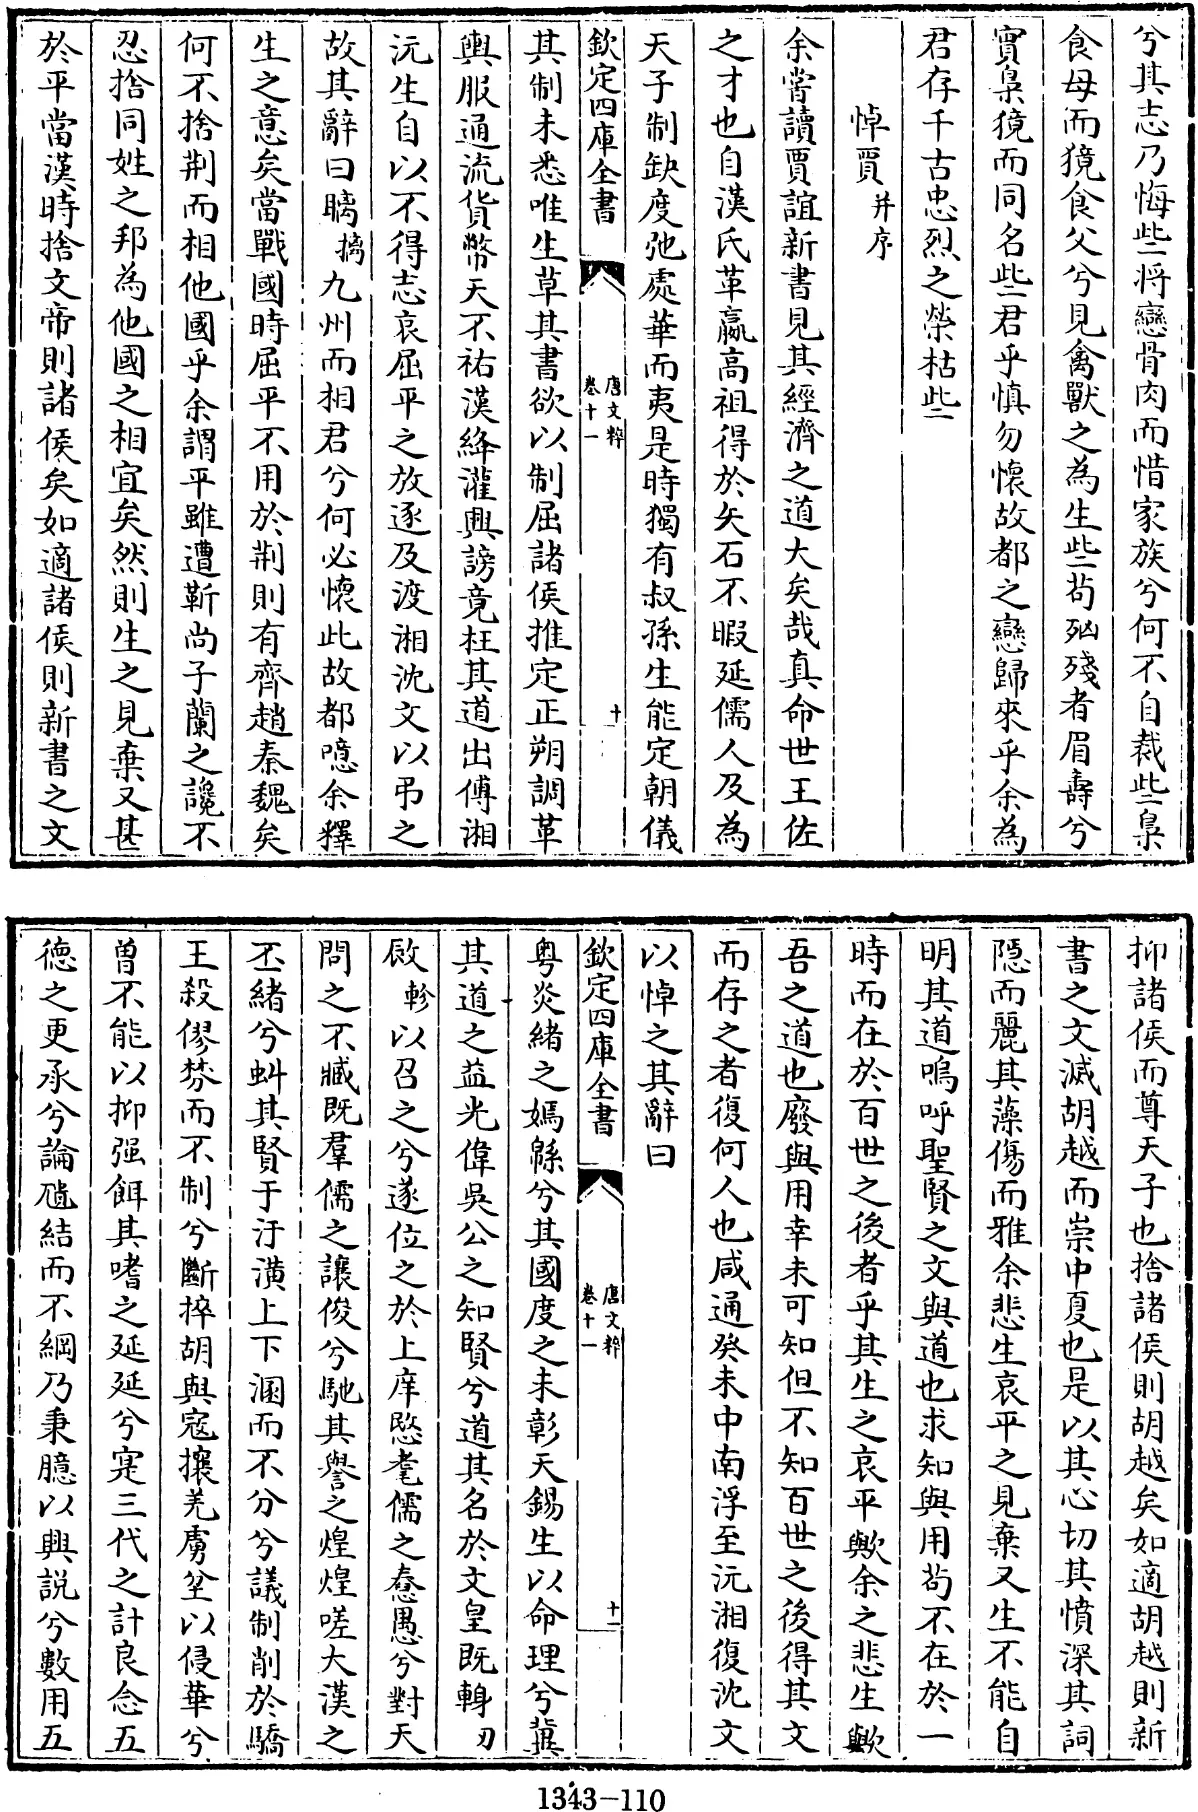 兮其志乃悔些將戀骨肉而惜家族兮何不自裁些梟
食母而獍食父兮見禽獸之為生些苟㐫殘者眉壽兮
實梟獍而同名些君乎慎勿懷故都之戀歸來乎余為
君存千古忠烈之榮枯些
悼賈并序
余嘗讀賈誼新書見其經濟之道大矣哉真命世王佐
之才也自漢氏革嬴高祖得於矢石不暇延儒人及為
天子制缺度弛處華而夷是時獨有叔孫生能定朝儀
欽定四庫全書 唐文粹 卷十一 十
其制未悉唯生草其書欲以制屈諸侯推定正朔調革
輿服通流貨幣天不祐漢絳灌興謗竟枉其道出傅湘
沅生自以不得志哀屈平之放逐及渡湘沈文以弔之
故其辭曰瞝摛九州而相君兮何必懷此故都噫余釋
生之意矣當戰國時屈平不用於荆則有齊趙秦魏矣
何不捨荆而相他國乎余謂平雖遭靳尚子蘭之讒不
忍捨同姓之邦為他國之相宜矣然則生之見棄又甚
於平當漢時捨文帝則諸侯矣如適諸侯則新書之文
抑諸侯而尊天子也捨諸侯則胡越矣如適胡越則新
書之文滅胡越而崇中夏也是以其心切其憤深其詞
隱而麗其藻傷而雅余悲生哀平之見棄又生不能自
明其道嗚呼聖賢之文與道也求知與用苟不在於一
時而在於百世之後者乎其生之哀平歟余之悲生歟
吾之道也廢與用幸未可知但不知百世之後得其文
而存之者復何人也咸通癸未中南浮至沅湘復沈文
以悼之其辭曰
欽定四庫全書 唐文粹 卷十一 十一
粤炎緒之嫣緜兮其國度之未彰天錫生以命理兮冀
其道之益光偉吳公之知賢兮道其名於文皇既軔刃
啟軫以召之兮遂位之於上庠愍耄儒之憃愚兮對天
問之不臧既羣儒之讓俊兮馳其譽之煌煌嗟大漢之
丕緒兮㕚其賢于汙潢上下溷而不分兮議制削於驕
王殺僇棼而不制兮斷捽胡與寇攘羌虜坌以侵華兮
曾不能以抑强餌其嗜之延延兮寔三代之計良念五
德之更承兮論𩪦結而不綱乃秉臆以興説兮數用五